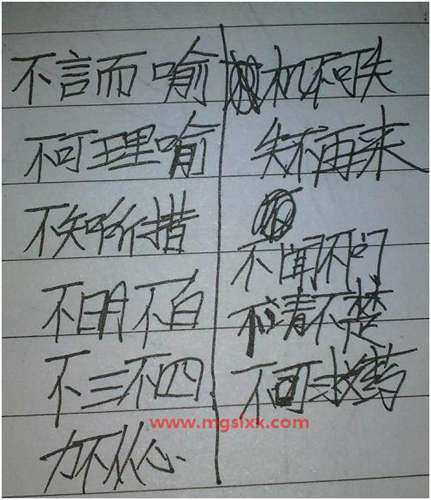 不言而喻
不可理喻
不知所措
不明不白
不三不四
力不从心
机不可失
失不再来
不闻不问
不清不楚
不可救药
www.mgslxx.com